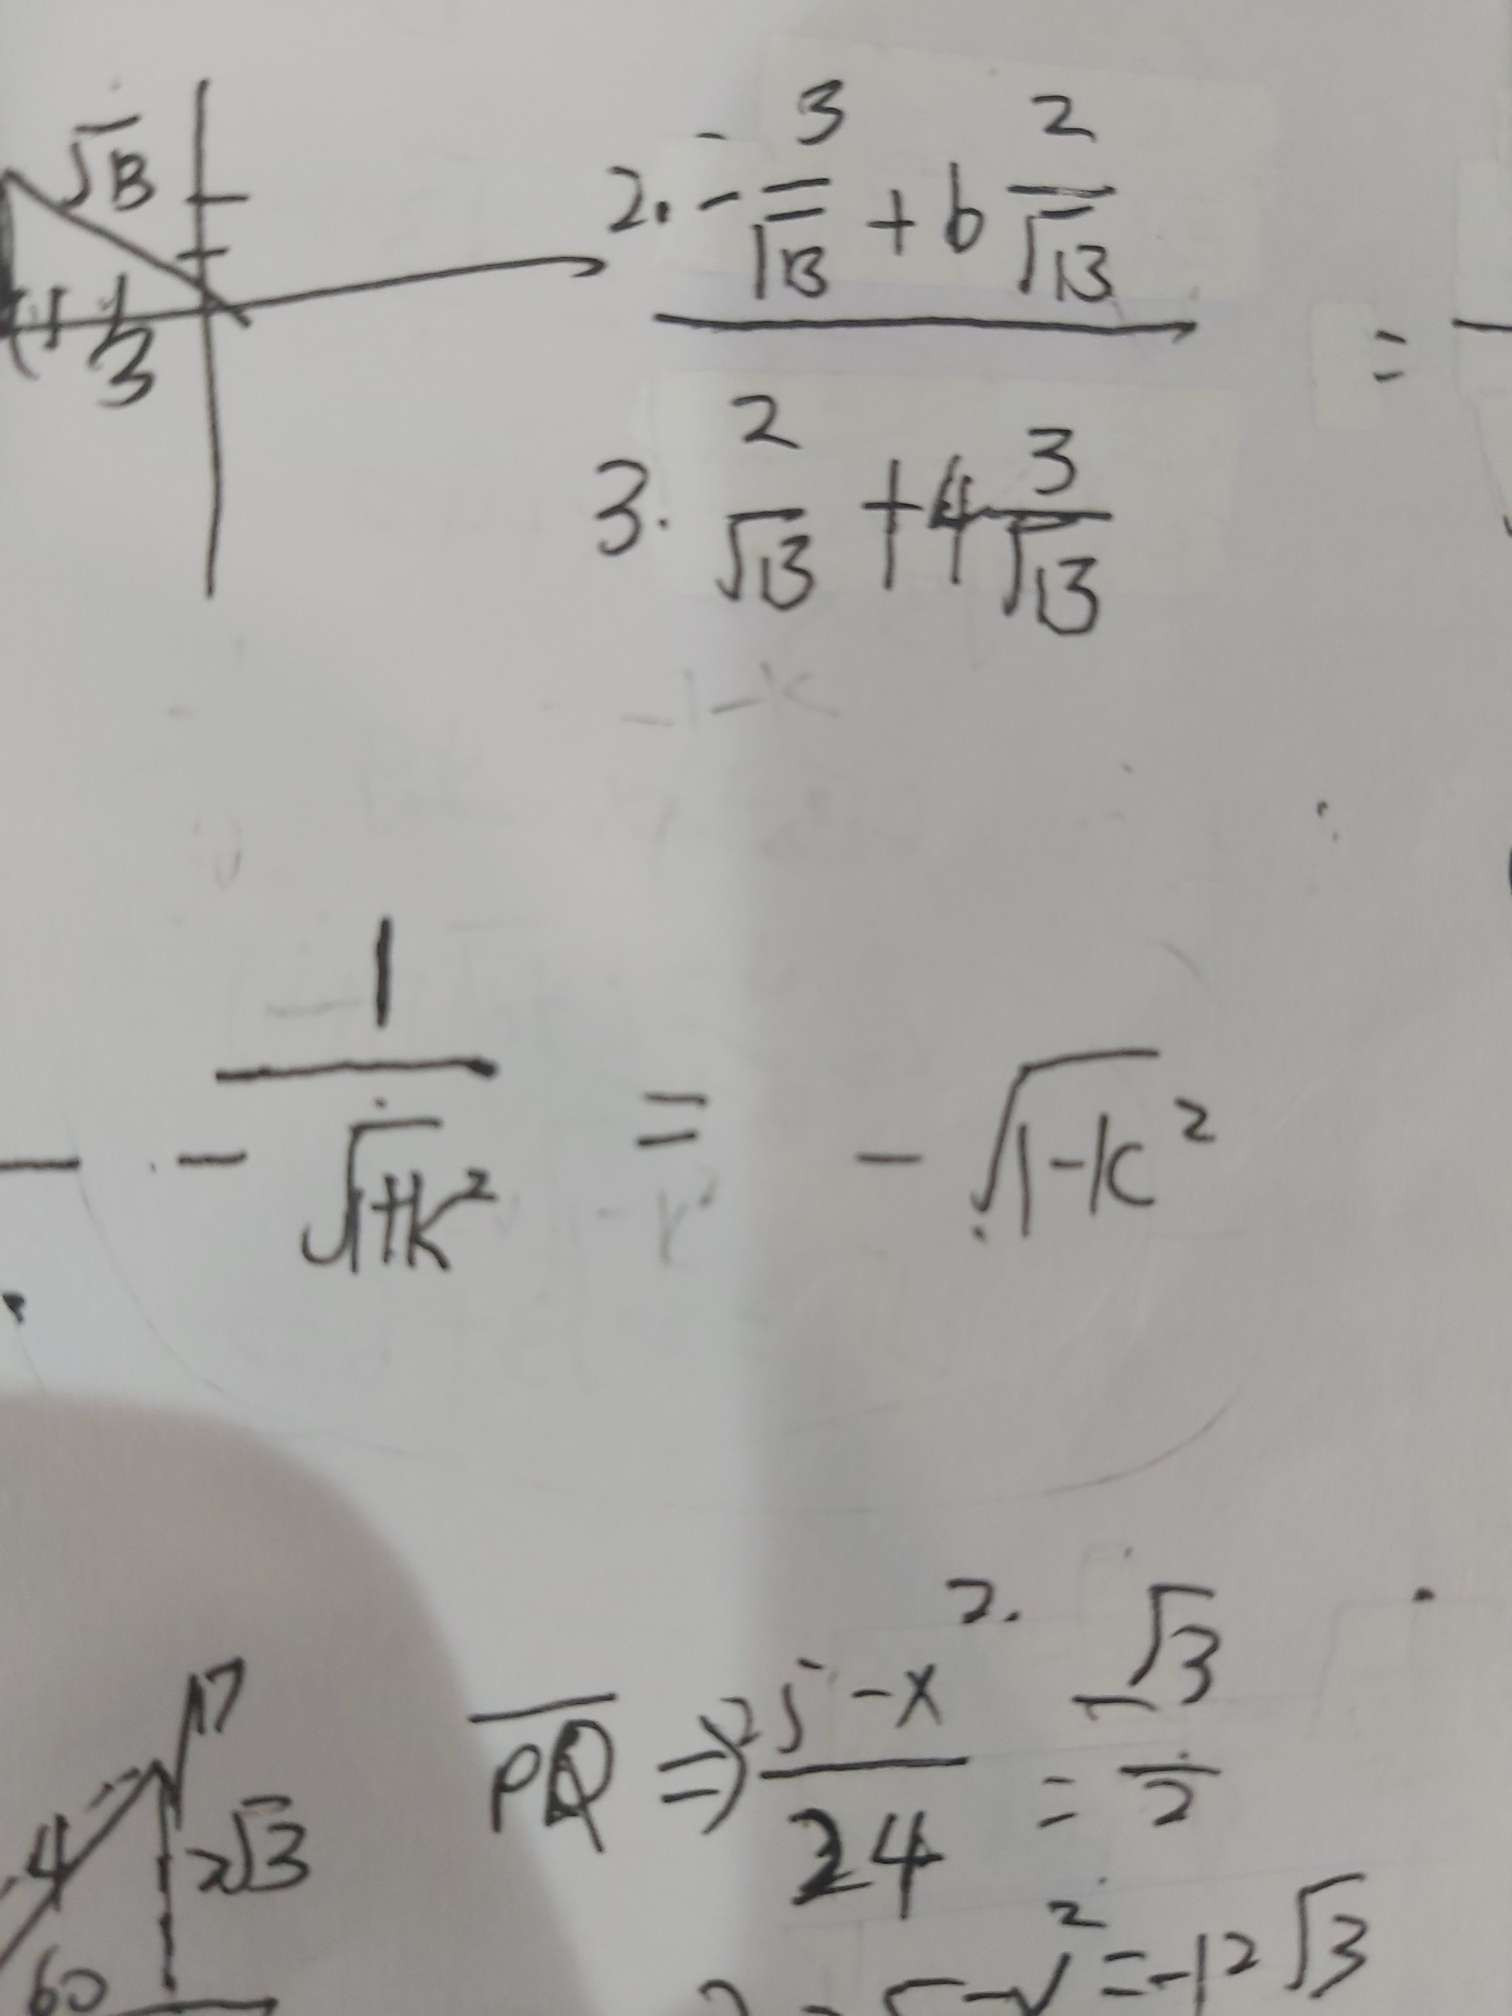 √13
3
2. -3/√13 + 6 2/√13
=
3. 2/√13 + 4 3/√13
- 1/√1+k² = -√1-k²
17
4
2√3
60
PQ ⇒ 25-x²/24 = -√3/2
5-x²=-12√3